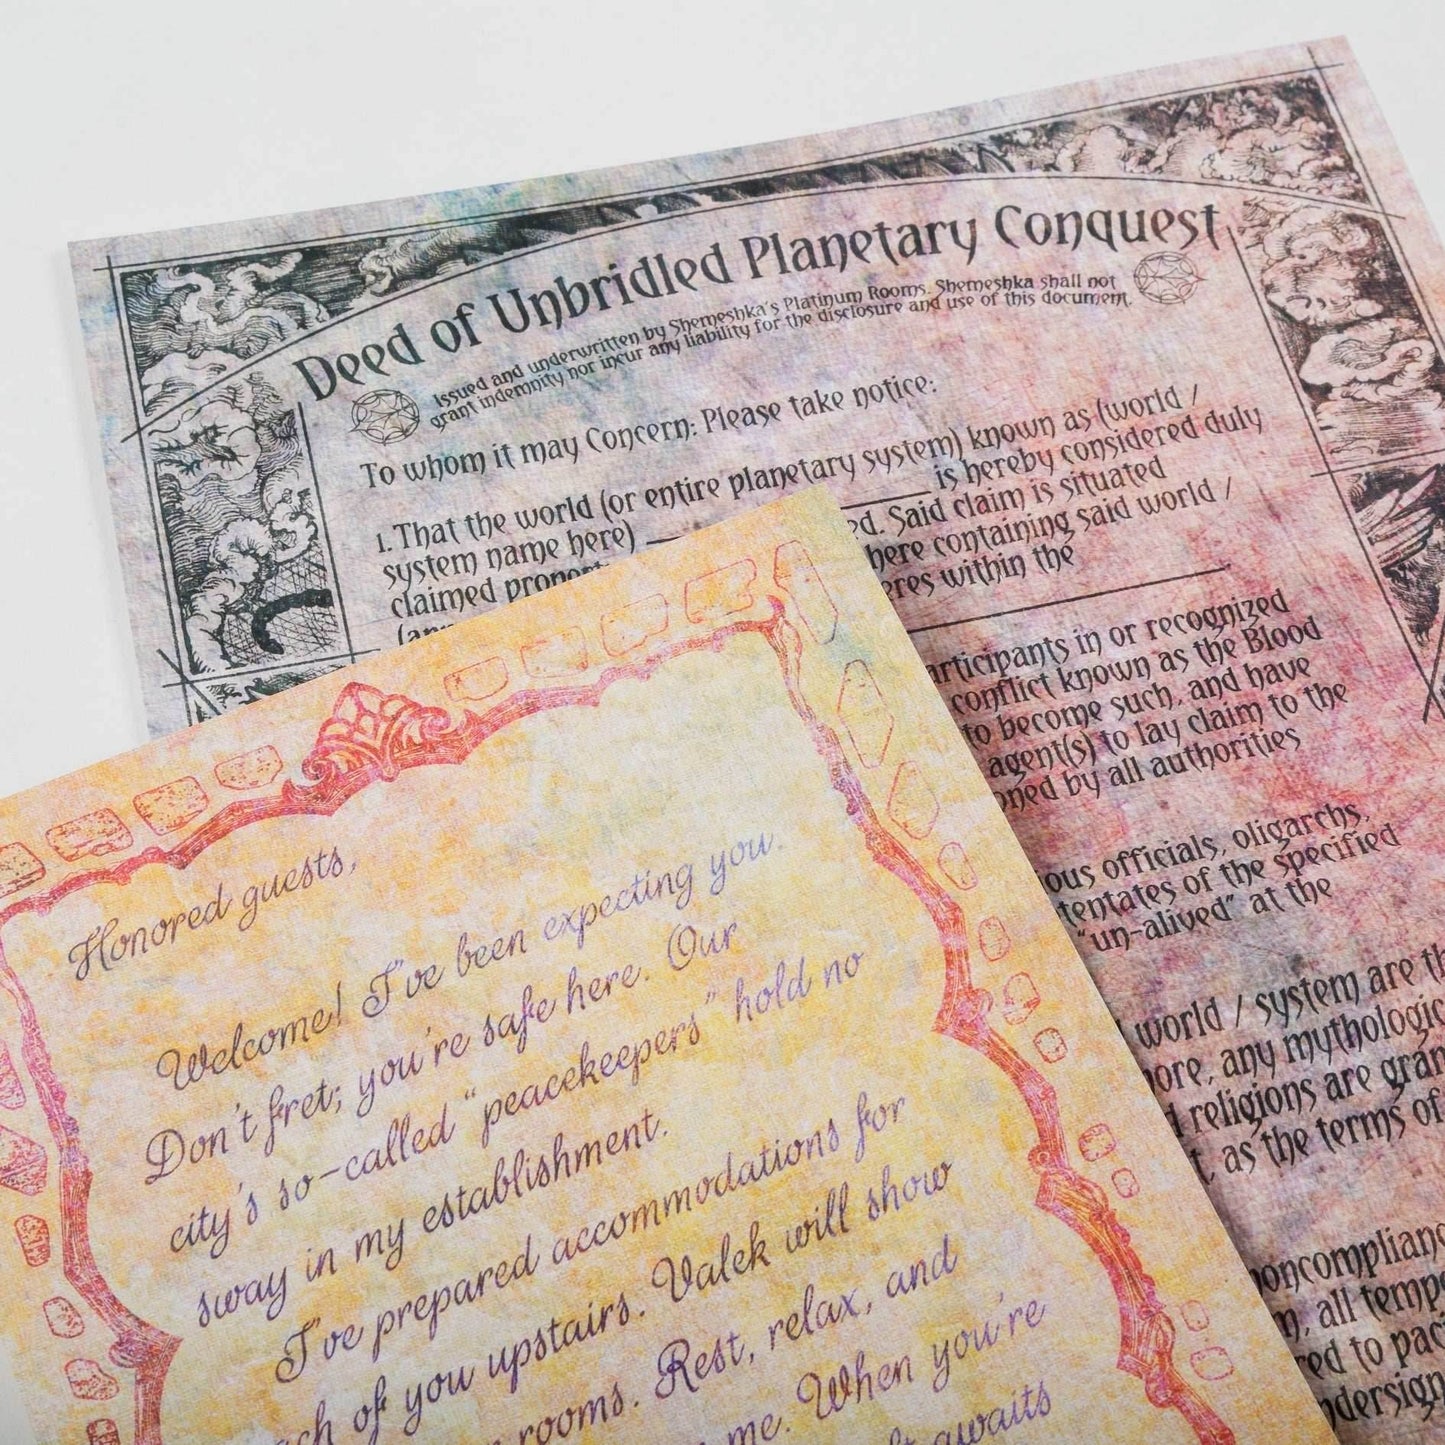 Deed of Unbridled Planetary Conquest
Issued and underwritten by Shemeshka's Platinum Rooms. Shemeshka shall not
grant indemnity nor incur any liability for the disclosure and use of this document.
To whom it may Concern: Please take notice:
1. That the world (or entire planetary system) known as (world /
system name here) is hereby considered duly
claimed ed. Said claim is situated
here containing said world /
eres within the
articipants in or recognized
conflict known as the Blood
to become such, and have
agent(s) to lay claim to the
oned by all authorities
ous officials, oligarchs,
tentates of the specified
"un-alived" at the
world / system are th
ore, any mythologic
d religions are gran
t, as the terms of
noncomplianc
m, all tempo
red to pac
ndersign
Honored guests,
Welcome! I've been expecting you.
Don't fret; you're safe here. Our
city's so-called "peacekeepers" hold no
sway in my establishment.
I've prepared accommodations for
ach of you upstairs. Valek will show
rooms. Rest, relax, and
me. When you're
awaits